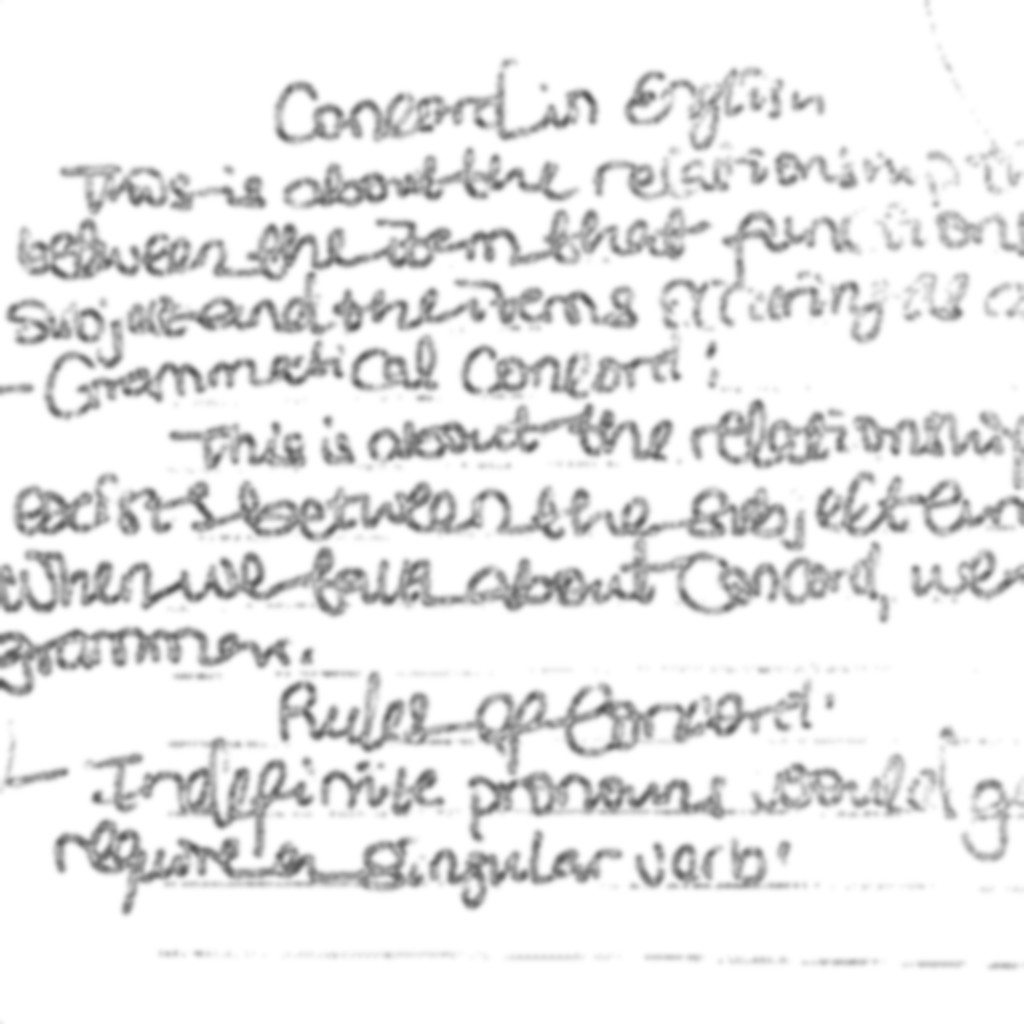 Concord in English
This is about the relationship
between the item that functions
Subject and the items occuring as
- Grammatical Concord:
This is about the relationship
exists between the subject
When we talk about Concord, we
grammar.
Rules of Concord:
- Indefinite pronouns would
require a singular verb: